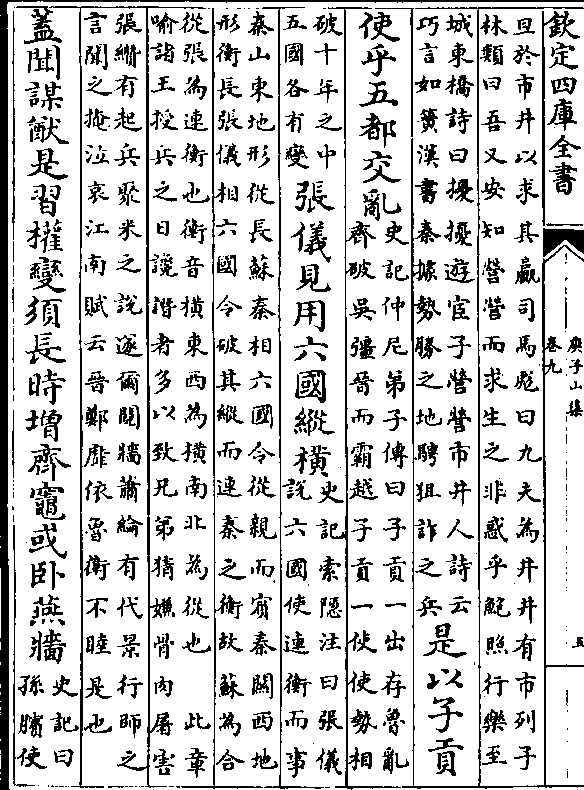 欽定四庫全書
庚子山集
卷九
五
旦於市井以求其贏司馬彪曰九夫為井井有市列子
林類曰吾又安知營營而求生之非惑乎鮑照行樂至
城東橋詩曰擾擾遊宦子營營市井人詩云
巧言如簧漢書秦據勢勝之地騁狙詐之兵
是以子貢
使乎五都交亂
史記仲尼弟子傳曰子貢一出存魯亂
齊破吳彊晉而霸越子貢一使使勢相
破十年之中
五國各有變
張儀見用六國縱橫
史記索隱注曰張儀
說六國使連衡而事
秦山東地形從長蘇秦相六國令從親而賓秦關西地
形衡長張儀相六國令破其縱而連秦之衡故蘇為合
從張為連衡也衡音橫東西為橫南北為從也 此章
喻諸王授兵之日讒譖者多以致兄弟猜嫌骨肉屠害
張纘有起兵聚米之說遂爾鬩牆蕭綸有代景行師之
言聞之掩泣哀江南賦云晉鄭靡依魯衛不睦是也
蓋聞謀猷是習權變須長時增齊竈或卧燕牆
史記曰
孫臏使